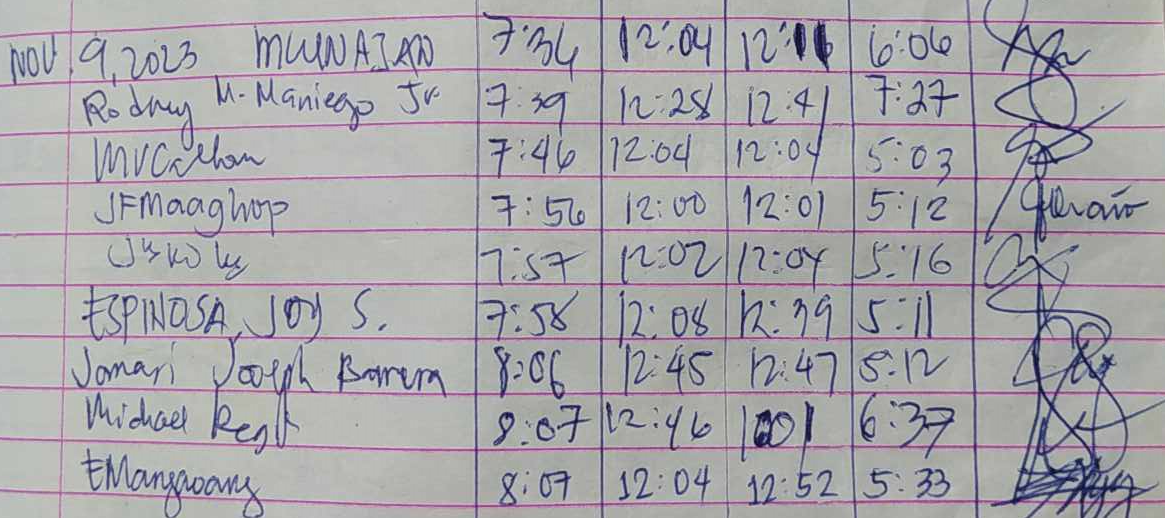 NOV. 9, 2023 MUNAJAN 7:36 12:04 12:11 6:06
Rodney M. Maniego Jr. 7:39 12:28 12:41 7:27
7:46 12:04 12:04 5:03
JFMaaghop 7:56 12:00 12:01 5:12
7:57 12:02 12:04 5:16
ESPINOSA, JOY S. 7:58 12:08 12:39 5:11
Jomari Joseph Barrera 8:06 12:45 12:47 5:12
Michael 8:07 12:46 1001 6:37
EMangaoang 8:07 12:04 12:52 5:33